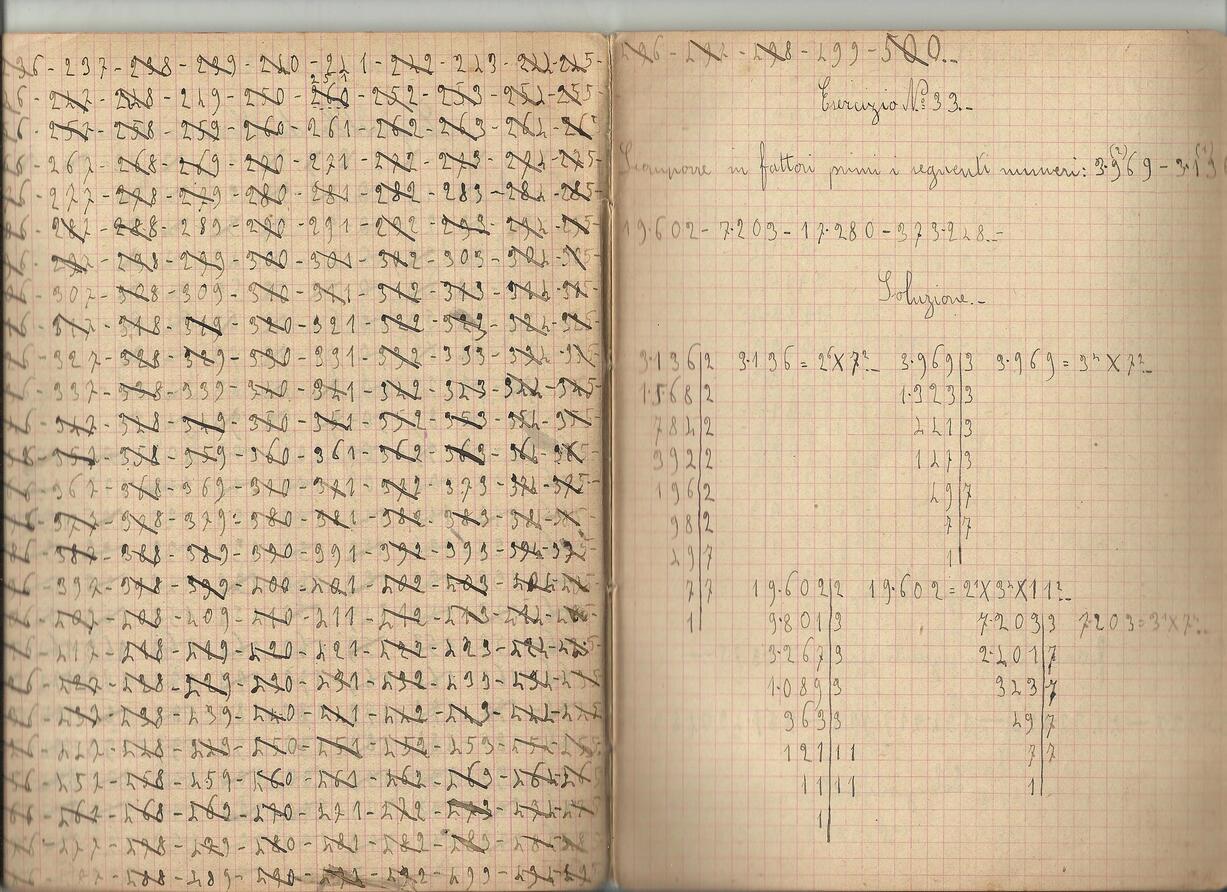 36 - 237 - 238 - 239 - 240 - 241 - 242 - 243 - 244 - 245 -
251
247 - 248 - 249 - 250 - 260 - 252 - 253 - 254 - 255
257 - 258 - 259 - 260 - 261 - 262 - 263 - 264 - 265
267 - 268 - 269 - 270 - 271 - 272 - 273 - 274 - 275
277 - 278 - 279 - 280 - 281 - 282 - 283 - 284 - 285
287 - 288 - 289 - 290 - 291 - 292 - 293 - 294 - 295
297 - 298 - 299 - 300 - 301 - 302 - 303 - 304 - 305
307 - 308 - 309 - 310 - 311 - 312 - 313 - 314 - 315
317 - 318 - 319 - 320 - 321 - 322 - 323 - 324 - 325
327 - 328 - 329 - 330 - 331 - 332 - 333 - 334 - 335
337 - 338 - 339 - 340 - 341 - 342 - 343 - 344 - 345
347 - 348 - 349 - 350 - 351 - 352 - 353 - 354 - 355
357 - 358 - 359 - 360 - 361 - 362 - 363 - 364 - 365
367 - 368 - 369 - 370 - 371 - 372 - 373 - 374 - 375
377 - 378 - 379 - 380 - 381 - 382 - 383 - 384 - 385
387 - 388 - 389 - 390 - 391 - 392 - 393 - 394 - 395
397 - 398 - 399 - 400 - 401 - 402 - 403 - 404 - 405
407 - 408 - 409 - 410 - 411 - 412 - 413 - 414 - 415
417 - 418 - 419 - 420 - 421 - 422 - 423 - 424 - 425
427 - 428 - 429 - 430 - 431 - 432 - 433 - 434 - 435
437 - 438 - 439 - 440 - 441 - 442 - 443 - 444 - 445
447 - 448 - 449 - 450 - 451 - 452 - 453 - 454 - 455
457 - 458 - 459 - 460 - 461 - 462 - 463 - 464 - 465
467 - 468 - 469 - 470 - 471 - 472 - 473 - 474 - 475
477 - 478 - 479 - 480 - 481 - 482 - 483 - 484 - 485
487 - 488 - 489 - 490 - 491 - 492 - 493 - 494 - 495
496 - 497 - 498 - 499 - 500.-
Esercizio Nº 33.-
Scomporre in fattori primi i seguenti numeri: 3·9(2)69 - 3·1(1)3
19·602 - 7·203 - 17·280 - 373·248.-
Soluzione.-
3·136|2 3·136 = 2⁶X7².- 3·969|3 3·969 = 3⁴X7².-
1·568|2 1·323|3
784|2 441|3
392|2 147|3
196|2 49|7
98|2 7|7
49|7 1|
7|7 19·602|2 19·602 = 2¹X3⁴X11².-
1| 9·801|3 7·203|3 7·203=3¹X7⁴.-
3·267|3 2·401|7
1·089|3 343|7
363|3 49|7
121|11 7|7
11|11 1|
1|